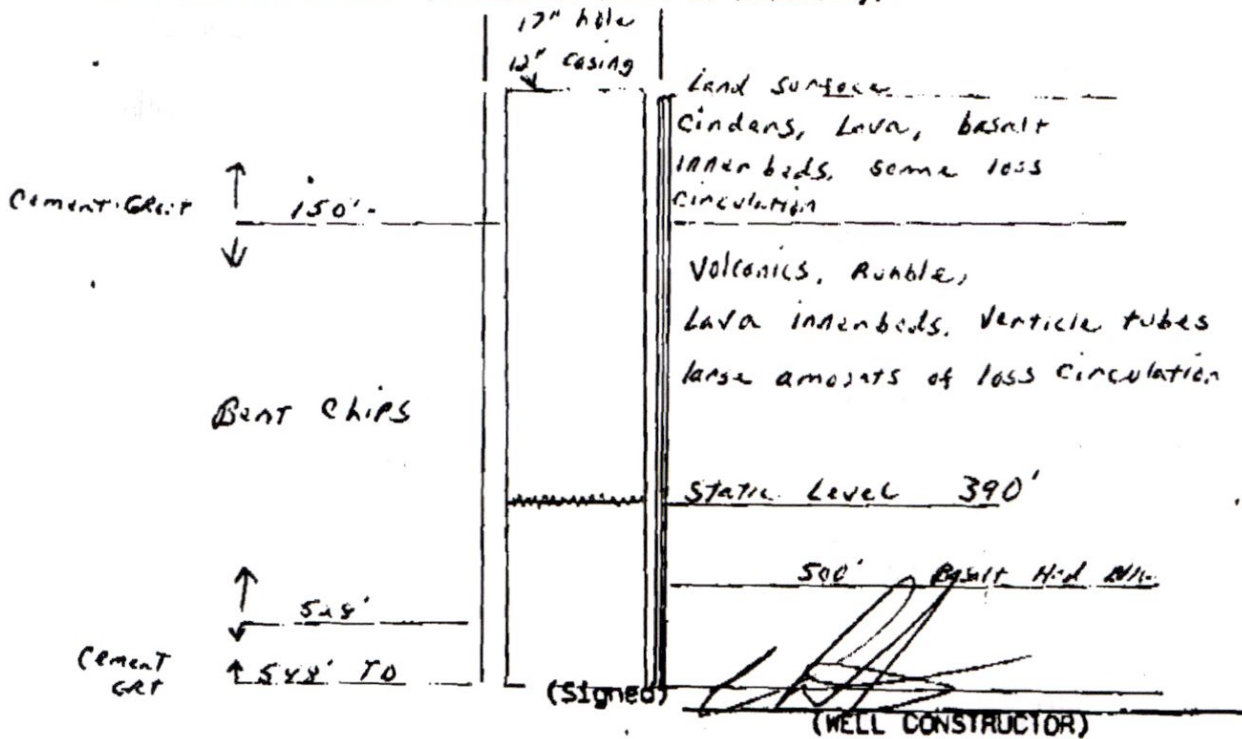 17" hole
12" casing
Land surface
Cinders, Lava, basalt
inner beds, some loss
circulation
Cement GRout 150'
Volcanics, Rubble,
Lava innerbeds. Verticle tubes
large amounts of loss circulation
Bent Chips
Static Level 390'
500' Basalt
528'
Cement
GRT
548' TD
(Signed)
(WELL CONSTRUCTOR)